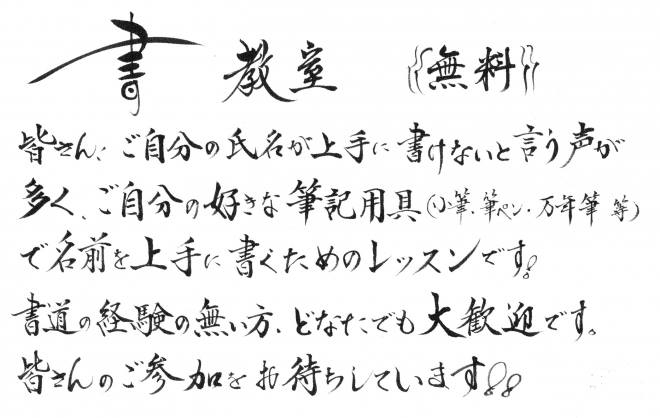 書 教室 無料
皆さん、ご自分の氏名が上手に書けないと言う声が
多く、ご自分の好きな筆記用具(小筆・筆ペン・万年筆 等)
で名前を上手に書くためのレッスンです。
書道の経験の無い方、どなたでも大歓迎です。
皆さんのご参加をお待ちしています!!